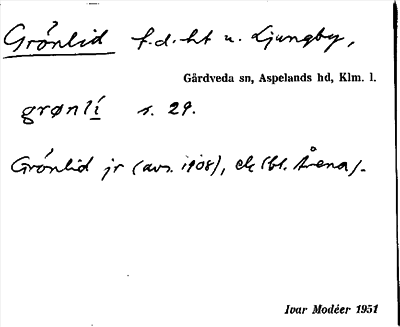 Grönlid f.d. ht u. Ljungby,
Gårdveda sn, Aspelands hd, Klm. l.
grønlí s. 29.
Grönlid jr (avs. 1908), ek (bl. Årena).
Ivar Modéer 1951